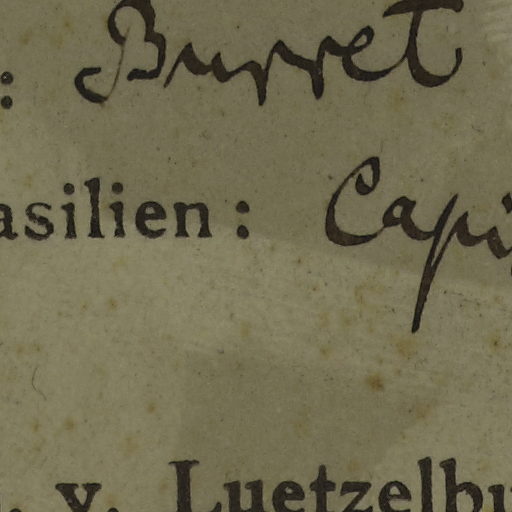 : Burret
asilien: Capi
. v. Luetzelbu